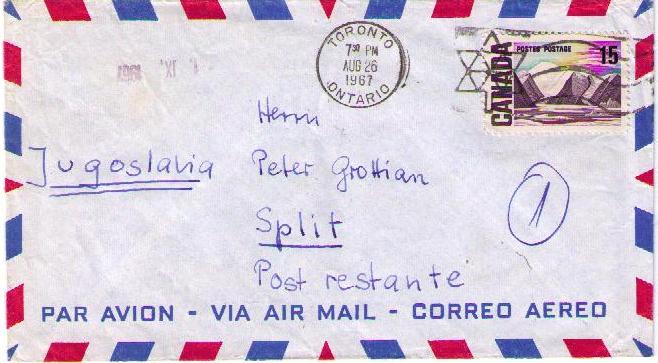 TORONTO
7³⁰ PM
AUG 26
1967
ONTARIO
POSTES POSTAGE
15
CANADA
IX. 1967
Herrn
Jugoslavia
Peter Grottian
Split
1
Post restante
PAR AVION - VIA AIR MAIL - CORREO AEREO